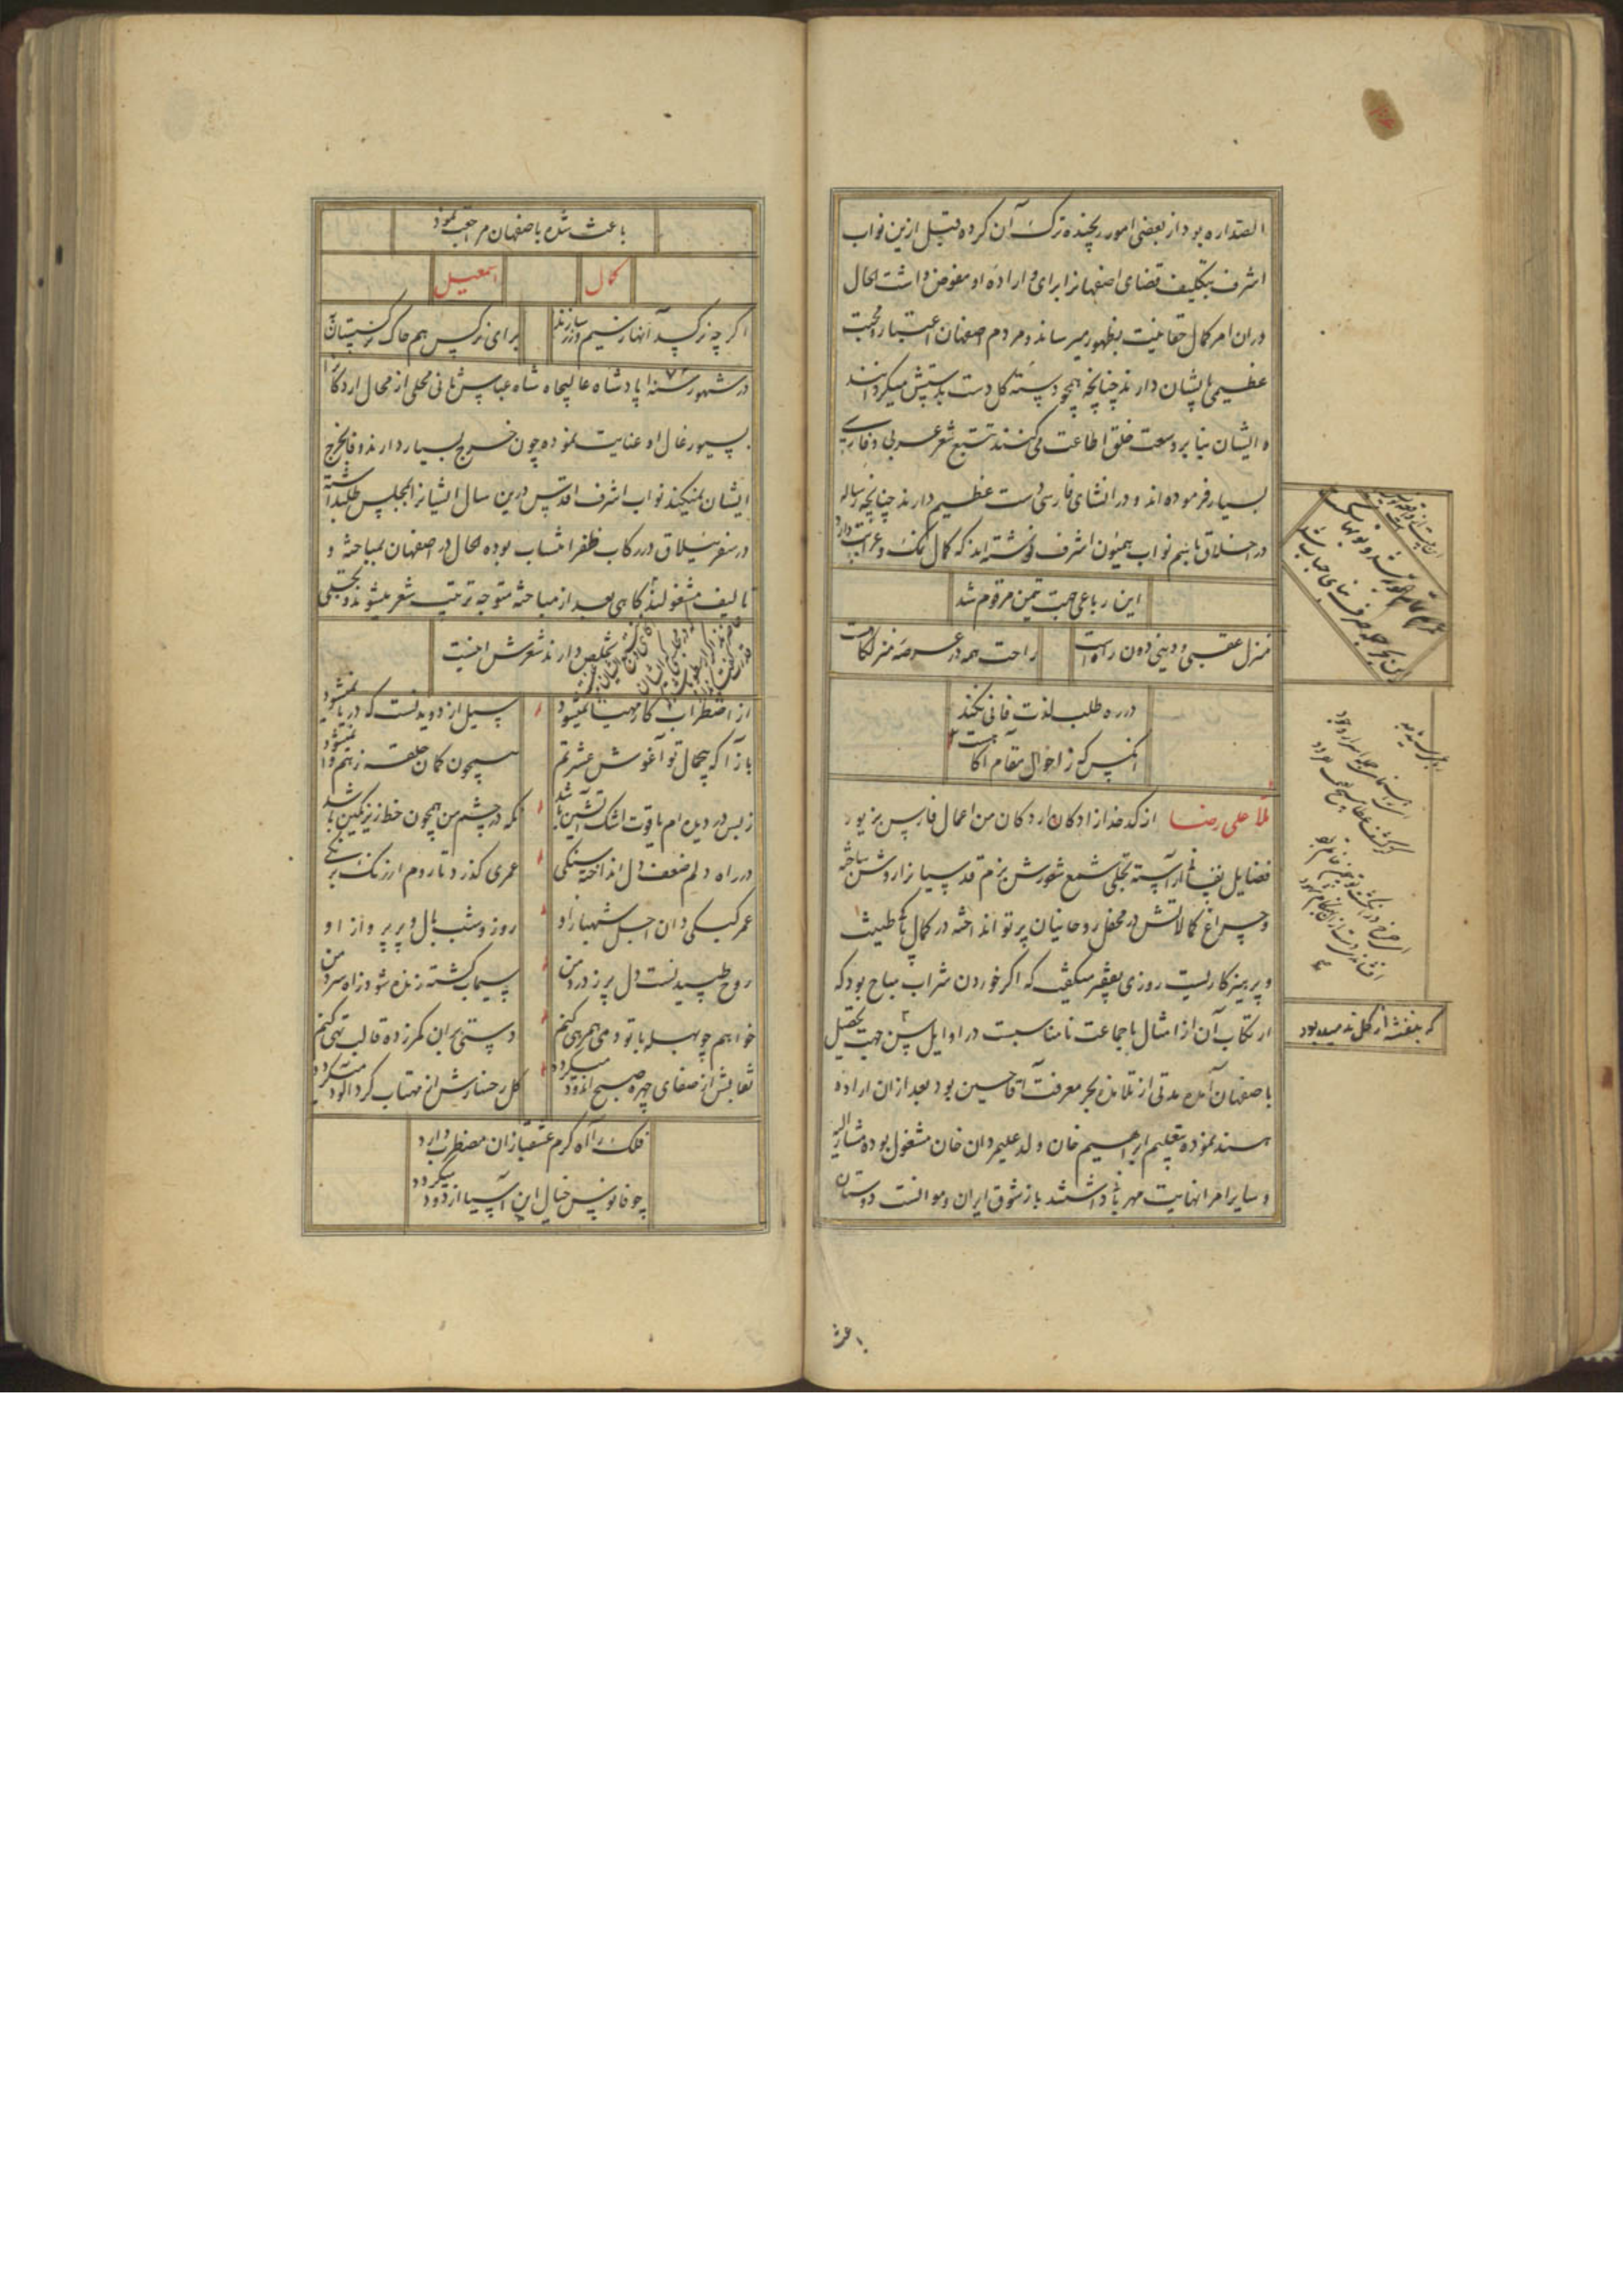 الصداره بود از بعضی امور رنجیده ترک آن کرده قبل ازین نواب
اشرف بتکلیف قضای اصفهانرا برای و اراده او مفوض داشت الحال
دران امر کمال حقانیت بظهور میرساند و مردم اصفهان اعتبار و محبت
عظیمی بایشان دارند چنانچه همچو دسته گل دست بدستش میکردانند
و ایشان بنا بر وسعت خلق اطاعت می کنند تتبع شعر عربی و فارسی
بسیار فرموده اند و در انشای فارسی دست عظیم دارند چنانچه رساله
در اخلاق باسم نواب همیون اشرف نوشته اند که کمال نمک و غرابت دارد
این رباعی جهت تیمن مرقوم شد
منزل عقبی و دینی دون راهست
راحت همه در عرصه منزلگاهست
در ره طلب لذت فانی نکند
آنکس که ز احوال مقام آگاهست
ملا علی رضا از کدخدازادکان اردکان من اعمال فارس بزیور
فضایل نفسانی آراسته تجلی شمع شعورش بزم قدسیانرا روشن ساخته
و چراغ کمالاتش در محفل روحانیان پرتو انداخته در کمال پاک طینت
و پرهیزکاریست روزی بفقیر میگفت که اکر خوردن شراب مباح بود که
ارتکاب آن از امثال ما جماعت نامناسبت در اوایل سن جهت تحصیل
باصفهان آمده مدتی از تلامذه بحر معرفت آقا حسین بود بعد ازان اراده
هند نموده بتعلیم ابراهیم خان ولد علیمردان خان مشغول بوده مشار الیه
و سایر امرا نهایت مهربانی داشتند باز شوق ایران و موانست دوستان
که بنفشه از کل ندمیده بود
باعث
باعث شده باصفهان مراجعت نمود
کمال
اسمعیل
اکر چه نرکسدانها ز سیم و زر سازند
برای نرکس هم خاک نرکستان به
در شهور سنه ۱۰۷۲ پادشاه عالیجاه شاه عباس ثانی محلی از محال اردکانرا
بسیورغال او عنایت نموده چون خرج بسیار دارند وفا بخرج
ایشان نمیکند نواب اشرف اقدس درین سال ایشانرا بمجلس طلبداشته
در سفر ییلاق در رکاب ظفر انتساب بوده الحال در اصفهان بمباحثه و
تالیف مشغولند کاهی بعد از مباحثه متوجه ترتیب شعر میشوند و تجلی
تخلص دارند شعرش اینست
از اضطراب کار مهیا نمیشود
سیل از دویدنست که دریا نمیشود
باز آ که بیجمال تو آغوش عشرتم
همچون کمان حلقه ز هم وا نمیشود
ز بس در دیده ام یاقوت اشک آتشین باشد
نکه در چشم من همچون خط زیر نکین باشد
در راه دلم ضعف دل انداخته سنکی
عمری کذرد تا روم از رنک برنکی
عمر کبکی دان اجل شهباز او
روز و شب بال و پر پرواز او
روح طپیدنست دل پر ز درد من
سیماب کشته زنده شود ز آه سرد من
خواهم چو بهله با تو دمی همرهی کنم
دستی بران کمر زده قالب تهی کنم
نقابش از صفای چهره صبح اندود میکردد
کل رخسارش از مهتاب کرد آلود میکردد
فلک را آه کرم عشقبازان مضطرب دارد
چو فانوس خیال این آسیا از دود میکردد